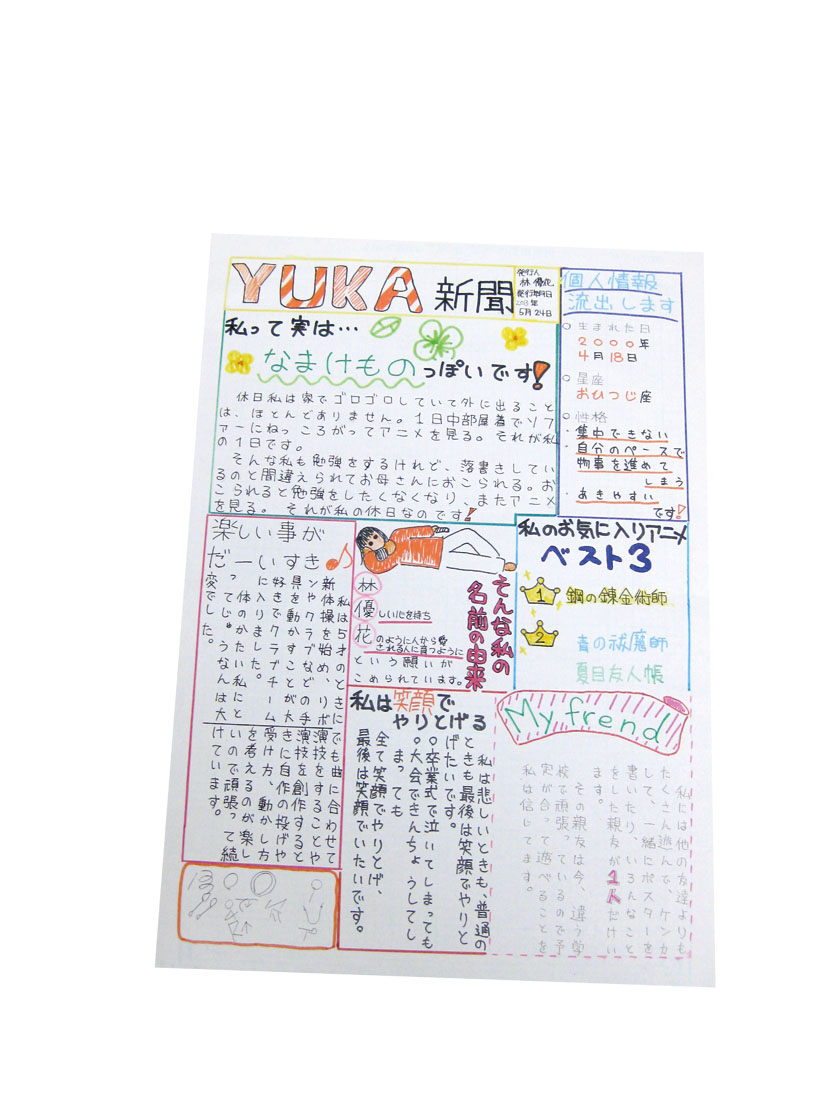 YUKA新聞
発行人
林 優花
発行年月日
2013年
5月24日
個人情報
流出します
○生まれた日
2000年
4月18日
○星座
おひつじ座
○性格
・集中できない
・自分のペースで
物事を進めて
しまう
・あきやすい
です!
私って実は…
なまけものっぽいです!
休日私は家でゴロゴロしていて外に出ること
は、ほとんどありません。1日中部屋着でソフ
ァーにねっころがってアニメを見る。それが私
の1日です。
そんな私も勉強をするけれど、落書きしてい
るのと間違えられてお母さんにおこられる。お
こられると勉強をしたくなくなり、またアニメ
を見る。それが私の休日なのです!
楽しい事が
だーいすき♪
私は5才のときに
新体操を始め、リボ
変でした。
でも曲に合わせて
演技をすることや
演技を創作すると
きに自作の投げや
受け方、動かし方
を考えるのが楽し
いので頑張って続
けています。
そんな私の
名前の由来
林
優しい心を持ち
花のように人から愛
される人に育つように
という願いが
こめられています。
私のお気に入りアニメ
ベスト3
1 鋼の錬金術師
2 青の祓魔師
夏目友人帳
私は笑顔で
やりとげる
私は悲しいときも、普通の
ときも最後は笑顔でやりと
げたいです。
卒業式で泣いてしまっても
大会できんちょうしてし
まっても
全て笑顔でやりとげ、
最後は笑顔でいたいです。
My frend
私には他の友達よりも
たくさん遊んで、ケンカ
して、一緒にポスターを
書いたり、いろんなこと
をした親友が1人だけい
ます。
その親友は今、違う学
校で頑張っているので予
実が合って遊べることを
私は信じてます。